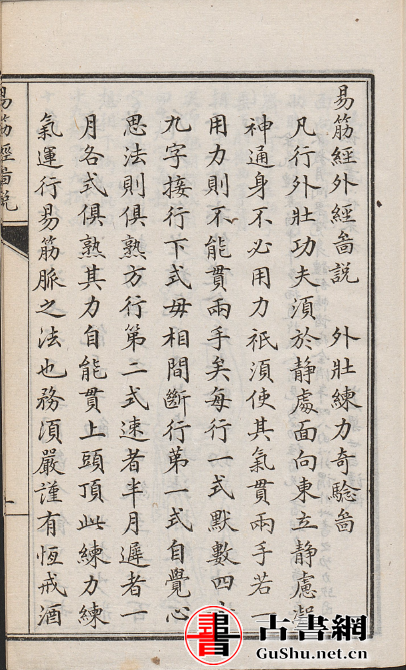 易筋經外經啚説　外壯練力奇騐啚
凡行外壯功夫須於静處面向東立静慮凝
神通身不必用力祇須使其氣貫兩手若一
用力則不能貫兩手矣每行一式默數四十
九字接行下式毋相間斷行第一式自覺心
思法則俱熟方行第二式速者半月遲者一
月各式俱熟其力自能貫上頭頂此練力練
氣運行易筋脈之法也務須嚴謹有恆戒酒
易筋經啚説
一
書
古書網
GuShu.net.cn